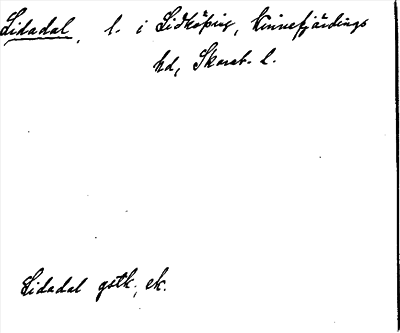 Lidadal, l. i Lidköping, Kinnefjärdings
hd, Skarab. l.
Lidadal gstk., ek.